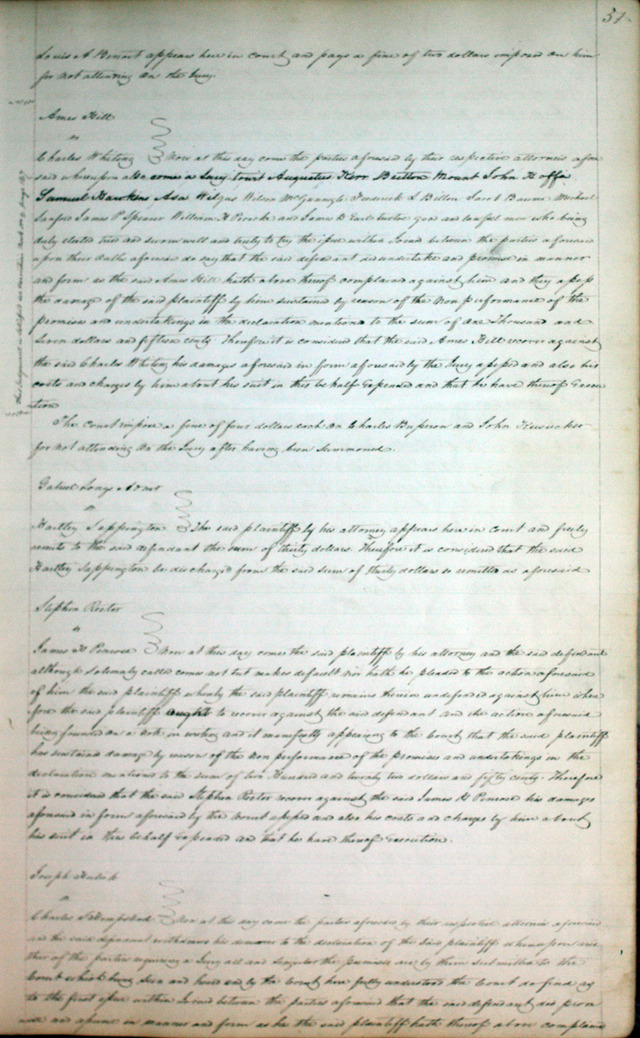 51.
Louis A Benoit appears here in court and pays a fine of two dollars imposed on him
for not attending on the Jury.
Ames Hill
vs
Charles Whiting Now at this day come the parties aforesaid by their respective attorneies afore
said whereupon also comes a Jury towit Augustus Kerr Beetton Mount John K
Samuel Hawkins Asa Wilgus Wilson Frederick L Billon Jacob Michael
James P Spencer William H and James B good and lawful men who being
duly elected tried and sworn well and truly to try the issue within Joined between the parties aforesaid
upon their oaths aforesaid do say that the said defendant did undertake and promise in manner
and form as the said Ames Hill hath above thereof complained against him and they assess
the damage of the said plaintiff by him sustained by reason of the non performance of the
promises and undertakings in the declaration mentioned to the sum of one Thousand and
seven dollars and fifteen cents. Therefore it is considered that the said Ames Hill recover against
the said Charles Whiting his damages aforesaid in form aforesaid by the Jury assessed and also his
costs and charges by him about his suit in this behalf expended and that he have thereof execu
tion
The Court impose a fine of four dollars each on Charles and John
for not attending on the Jury after having been summoned.
Gabriel Longs Admr
vs
Hartley Sappington The said plaintiff by his attorney appears here in court and freely
remits to the said defendant the sum of thirty dollars. Therefore it is considered that the said
Hartley Sappington be discharged from the said sum of thirty dollars so remitted as aforesaid
Stephen Rector
vs
James H Penrose Now at this day comes the said plaintiff by his attorney and the said defendant
although solemnly called comes not but makes default nor hath he pleaded to the action aforesaid
of him the said plaintiff whereby the said plaintiff remains therein undefended against him where
fore the said plaintiff ought to recover against the said defendant and the action aforesaid
being founded on a note in writing and it manifestly appearing to the Court that the said plaintiff
has sustained damage by reason of the non performance of the promises and undertakings in the
declaration mentioned to the sum of two Hundred and twenty two dollars and fifty cents. Therefore
it is considered that the said Stephen Rector recover against the said James H Penrose his damages
aforesaid in form aforesaid by the Court assessed and also his costs and charges by him about
his suit in this behalf expended and that he have thereof execution.
Joseph
vs
Charles S Hempstead Now at this day come the parties aforesaid by their respective attorneies aforesaid
and the said defendant withdraws his demurrer to the declaration of the said plaintiff whereupon nei
ther of the parties requiring a Jury all and singular the premises are by them submitted to the
Court which being seen and heard and by the Court here fully understood the Court do find as
to the first issue within Joined between the parties aforesaid that the said defendant did prom
ise and assume in manner and form as he the said plaintiff hath thereof above complained